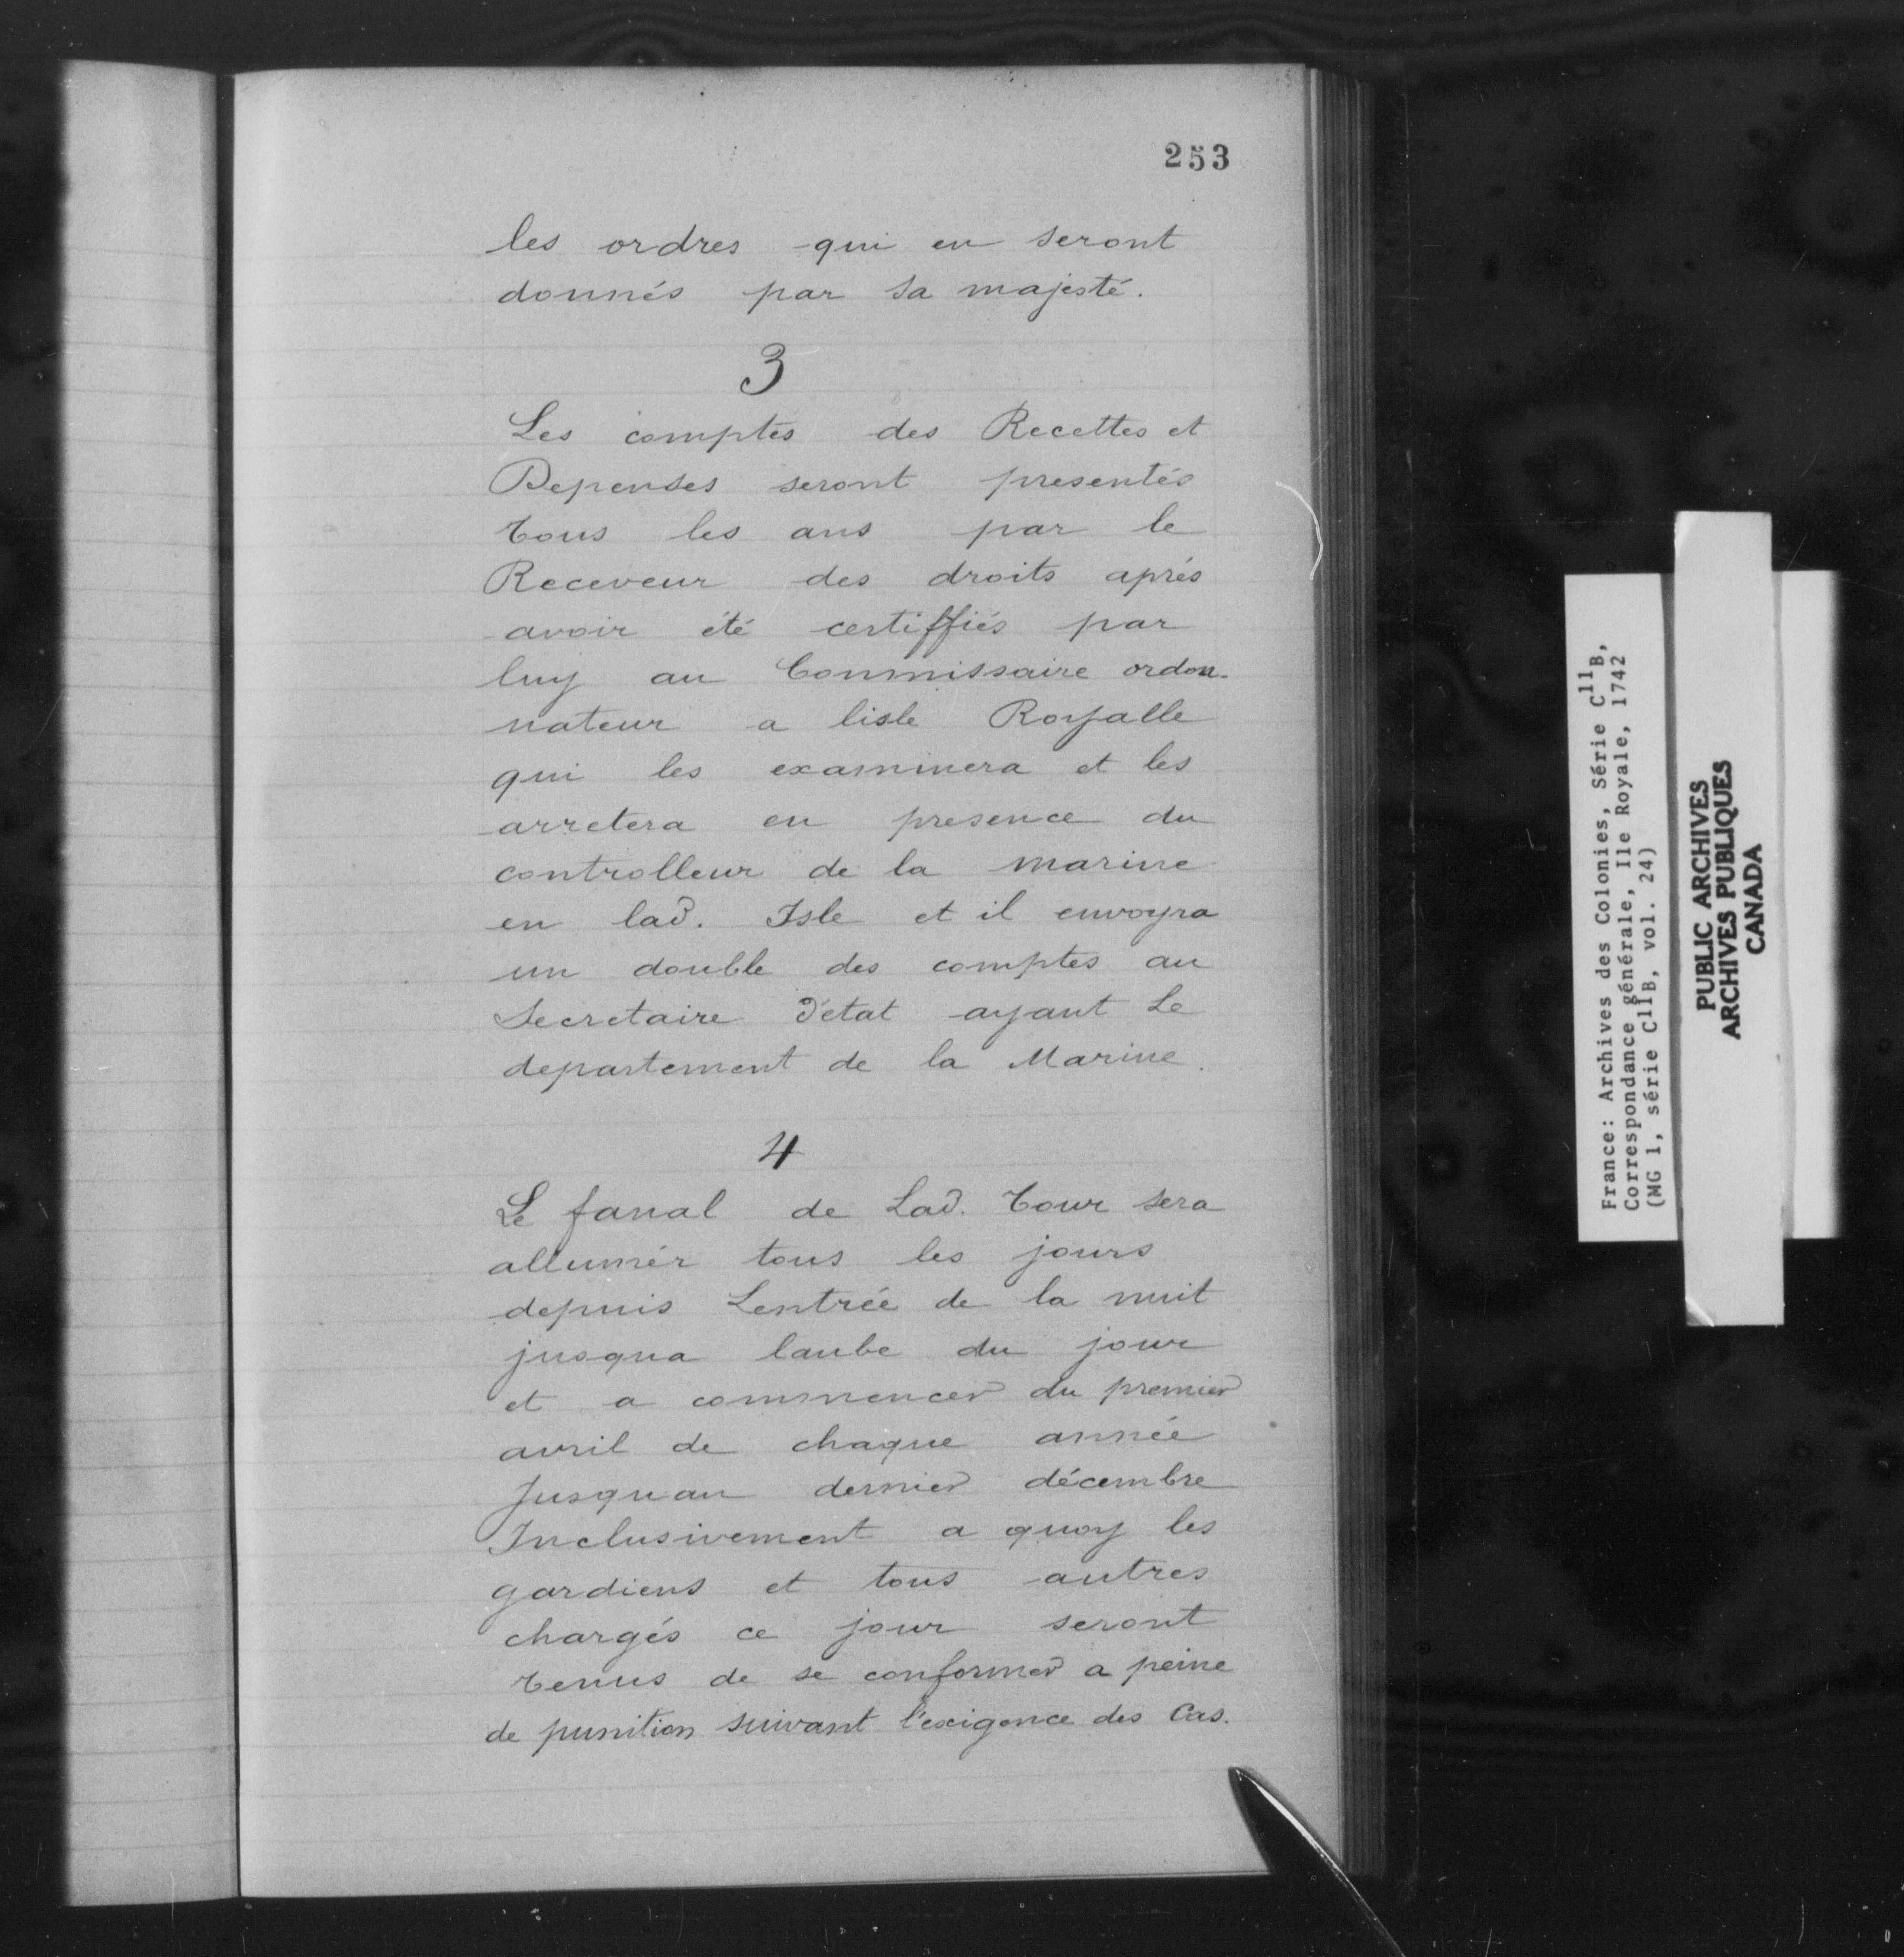 253
les ordres qui en seront
donnés par sa majesté.
3
Les comptes des Recettes et
Depenses seront presentés
tous les ans par le
Receveur des droits aprés
avoir été certiffiés par
luy au Commissaire ordon-
nateur a lisle Royalle
qui les examinera et les
arretera en presence du
controlleur de la marine
en lad. Isle et il envoyra
un double des comptes au
Secretaire d'état ayant Le
departement de la Marine.
4
Le fanal de Lad. tour sera
allumér tous les jours
depuis Lentrée de la nuit
jusqua laube du jour
et a commencer du premier
avril de chaque année
Jusquau dernier décembre
Inclusivement a quoy les
gardiens et tous autres
chargés ce jour seront
tenus de se conformer a peine
de punition suivant l'exigence des Cas.
France: Archives des Colonies, Série C11B,
Correspondance générale, Ile Royale, 1742
(MG 1, série C11B, vol. 24)
PUBLIC ARCHIVES
ARCHIVES PUBLIQUES
CANADA